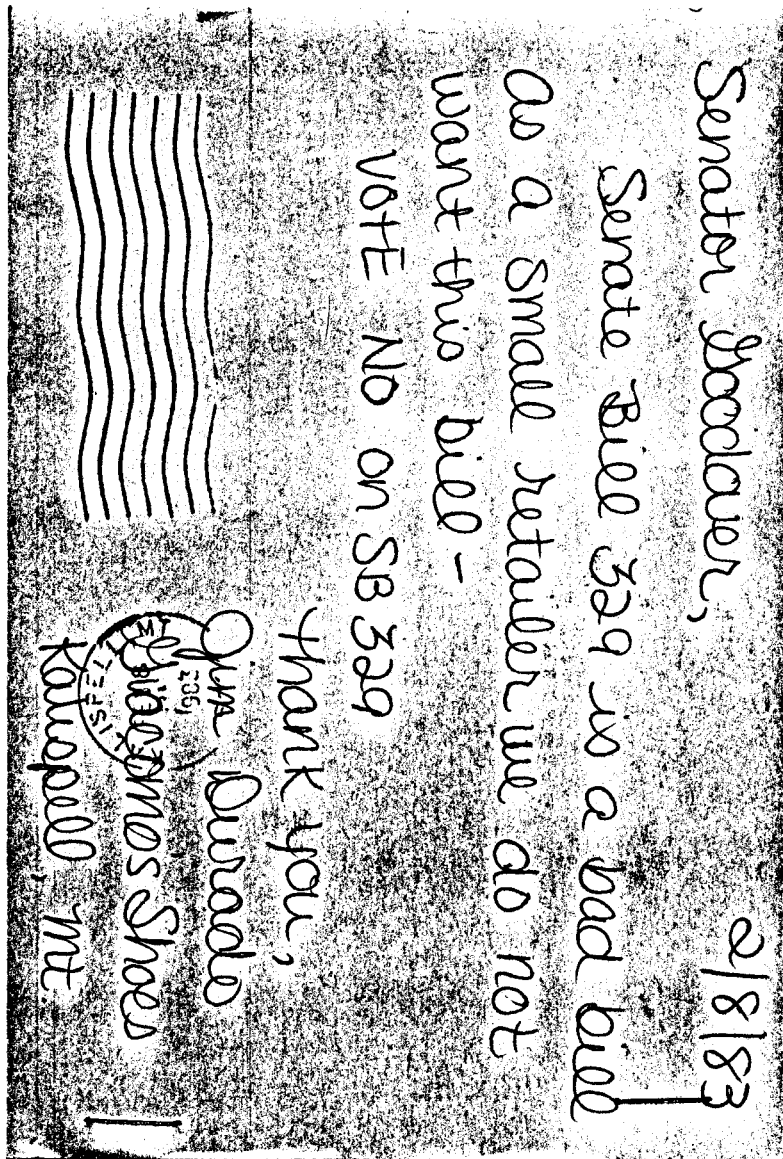 2/8/83
Senator Goodover,
Senate Bill 329 is a bad bill
as a small retailer we do not
want this bill -
VOTE No on SB 329
Thank you,
Jim
Shoes
Kalispell, Mt.
ISPELL
1983